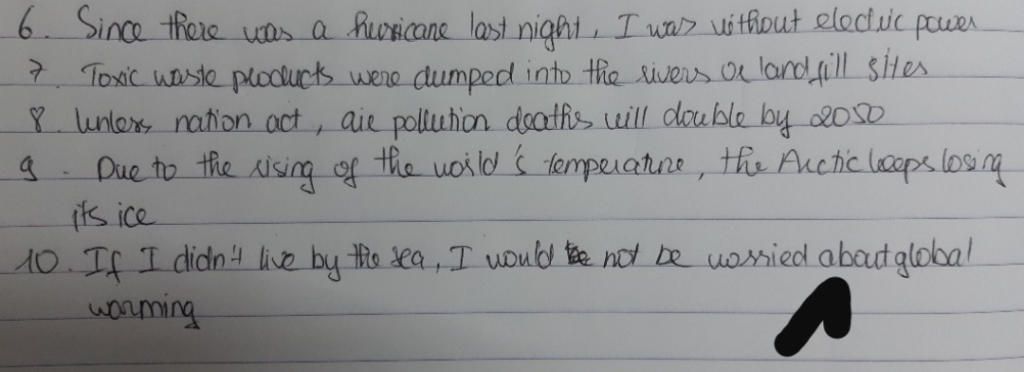 6. Since there was a hurricane last night, I was without electric power
7. Toxic waste products were dumped into the rivers or landfill sites
8. Unless nation act, air pollution deaths will double by 2050
9. Due to the rising of the world's temperature, the Arctic keeps losing
its ice
10. If I didn't live by the sea, I would not be worried about global
warming